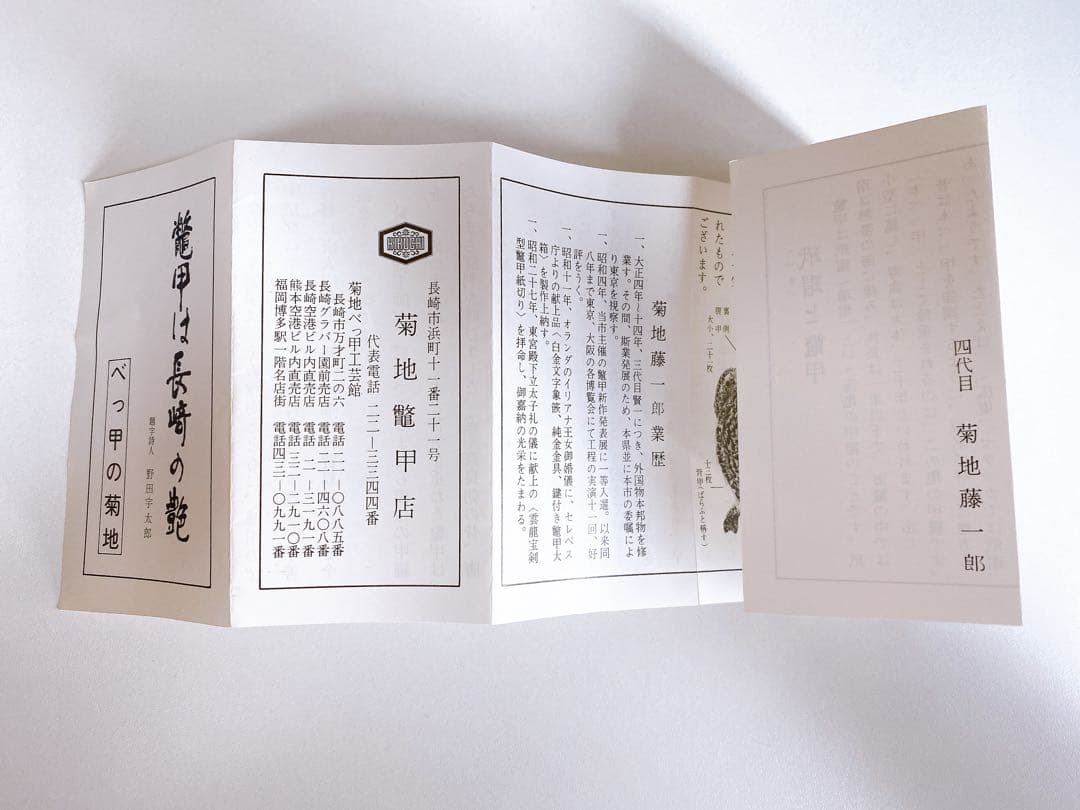 四代目 菊地藤一郎
れたもので
ございます。
大小、二十一枚
十三枚
背甲(ばらふと称す)
菊地藤一郎業歴
一、大正四年~十四年、三代目賢一につき、外国物本邦物を修
業す。その間、斯業発展のため、本県並に本市の委嘱によ
り東京を視察す。
一、昭和四年、当市主催の鼈甲新作発表展に一等入選。以来同
八年まで東京、大阪の各博覧会にて工程の実演十一回、好
評をうく。
一、昭和十一年、オランダのイリアナ王女御婚儀に、セレベス
庁よりの献上品〈白金文字象嵌、純金金具、鍵付き鼈甲大
箱〉を製作上納す。
一、昭和二十七年、東宮殿下立太子礼の儀に献上の〈雲龍宝剣
型鼈甲紙切り〉を拝命し、御嘉納の光栄をたまわる。
KIKUCHI
長崎市浜町十一番二十一号
菊地鼈甲店
代表電話 二二―三三四四番
菊地べっ甲工芸館
長崎市万才町二の六 電話 二一―〇八八五番
長崎グラバー園前売店 電話 二二―四六〇八番
長崎空港ビル内直売店 電話 二一―三一九一番
熊本空港ビル内直売店 電話 三二―二九一〇番
福岡博多駅一階名店街 電話四三一―〇九九一番
鼈甲は長崎の艶
題字詩人 野田宇太郎
べっ甲の菊地